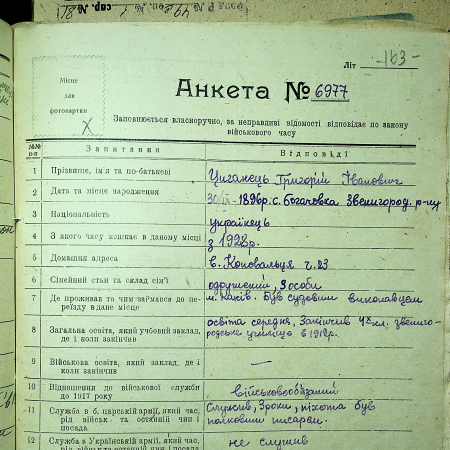 Літ -163-
Місце
для
фотокартки
Анкета № 6977
Заповнюється власноручно, за неправдиві відомості відповідає по закону
військового часу
№№ п-п Запитання Відповіді
1 Прізвище, ім'я та по-батькові Циганець Григорій Іванович
2 Дата та місце народження 30/IX-1896р. с. Богачовка Звенигород. р-ну
3 Національність українець
4 З якого часу мешкає в даному місці з 1928 р.
5 Домашня адреса в. Коновальця ч. 23
6 Сімейний стан та склад сім'ї одружений, 3 особи
7 Де проживав та чим займався до пе-
реїзду в дане місце м. Канів. Був судовим виконавцем
8 Загальна освіта, який учбовий заклад,
де і коли закінчив освіта середня, Закінчив 4х кл. звениго-
родське училище в 1912р.
9 Військова освіта, який заклад, де і
коли закінчив —
10 Відношення до військової служби
до 1917 року військовообов'язаний
11 Служба в б. царській армії, який час,
рід військ та останній чин і
посада Служив, 3 роки, піхота був
полковим писарем.
12 Служба в Українській армії, який час,
не служив